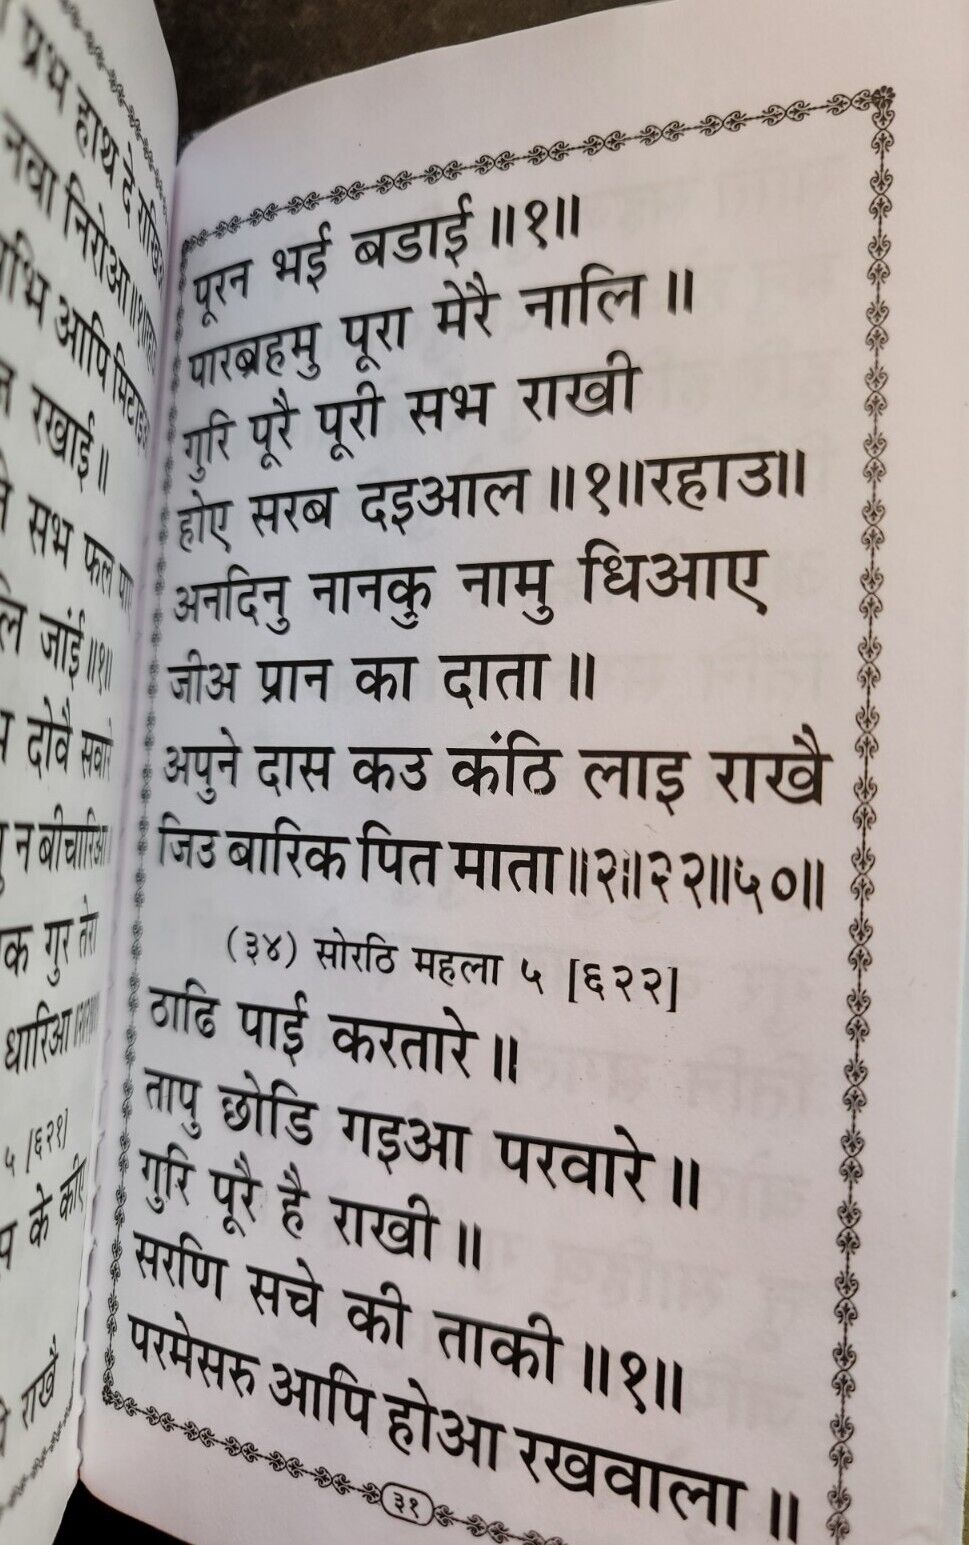 प्रभ हाथ दे
नवा निरोआ
आपि मिटाइआ
रखाई॥
सभ फल
जांई॥१॥
दोवै सवारे
न बीचारिआ
गुर तेरा
धारिआ
५ [६२१]
के कीए
राखै
पूरन भई बडाई॥१॥
पारब्रहमु पूरा मेरै नालि॥
गुरि पूरै पूरी सभ राखी
होए सरब दइआल॥१॥रहाउ॥
अनदिनु नानकु नामु धिआए
जीअ प्रान का दाता॥
अपुने दास कउ कंठि लाइ राखै
जिउ बारिक पित माता॥२॥२२॥५०॥
(३४) सोरठि महला ५ [६२२]
ठाढि पाई करतारे॥
तापु छोडि गइआ परवारे॥
गुरि पूरै है राखी॥
सरणि सचे की ताकी॥१॥
परमेसरु आपि होआ रखवाला॥
३१